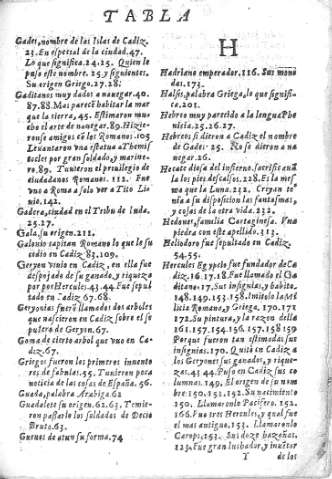 TABLA
Gades, nombre de las Islas de Cadiz.
23. En especial de la ciudad. 47.
Lo que significa. 24. 25. Quien le
puso este nombre. 25 y siguientes.
Su origen Griego. 27. 28.
Gaditanos muy dados a nauegar. 40.
87. 88. Mas parecē habitar la mar
que la tierra, 45. Estimaron mu
cho el arte de nauegar. 89. Hizie-
ronse amigos cō los Romanos. 105
Leuantaron vna estatua a Themis
tocles por gran soldado, y marine-
ro. 89. Tuuieron el priuilegio de
ciudadanos Romanos. 112. Fue
vno a Roma a solo ver a Tito Li
uio. 142.
Gadera, ciudad en el Tribu de Iuda.
25. 27.
Gala, su origen. 211.
Galonio capitan Romano lo que le su
cedio en Cadiz 83. 109.
Geryon viuio en Cadiz, en ella fue
despojado de su ganado, y riqueza
por Hercules. 43. 44. Fue sepul
tado en Cadiz 67. 68.
Geryonias fuerō llamados dos arboles
que nascieron en Cadiz sobre el se
pulcro de Geryon. 67.
Goma de cierto arbol que vuo en Ca-
diz. 67.
Griegos fueron los primeros inuento
res de fabulas. 55. Tuuieron poca
noticia de las cosas de España. 56.
Guada, palabra Arabiga. 62
Guadalete su origen. 62. 63. Temie-
ron passarlo los soldados de Decio
Bruto. 63.
de atun su forma. 74
H
Hadriano emperador. 116. Sus mone
das. 173.
Halfis, palabra Griega, lo que signifi-
ca. 201.
Hebreo muy parecido a la lengua Phe
nicia. 25. 26. 27.
Hebreos si dieron a Cadiz el nombre
de Gades. 25. No se dieron a na
uegar. 26.
Hecate diosa del infierno, sacrificauā
la los pies descalços. 228. Es la mes
ma que la Luna. 232. Creyan te
nia a su disposicion las fantasmas,
y cosas de la otra vida. 232.
familia Cartaginesa. Vna
piedra con este apellido. 113.
Heliodoro fue sepultado en Cadiz.
54. 55.
Hercules Egypcio fue fundador de Ca
diz. 16. 17. 18. Fue llamado el Ga
ditano. 17. Sus insignias, y habito,
148. 149. 153. 158. Imitolo la Mi
licia Romana, y Griega. 170. 171
172. Su pintura, y la razon della
161. 157. 154. 156. 157. 158 159
Porque fueron tan estimadas sus
insignias. 170. Quitò en Cadiz a
los Geryones sus ganados, y rique-
zas. 43. 44. Puso en Cadiz sus co
lumnas. 149. El origen de su nom
bre. 150. 151. 152. Su nacimiento
250. Llamaronlo Pacifero. 152.
166. Fue tres Hercules, y qual fue
el mas antiguo. 153. Llamaronlo
153. Sus doze hazañas.
123. Fue gran luchador, y inuētor
Y de los